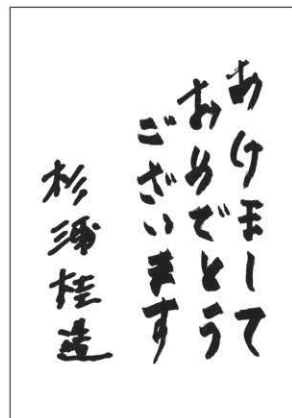 あけまして
おめでとう
ございます
杉浦桂造